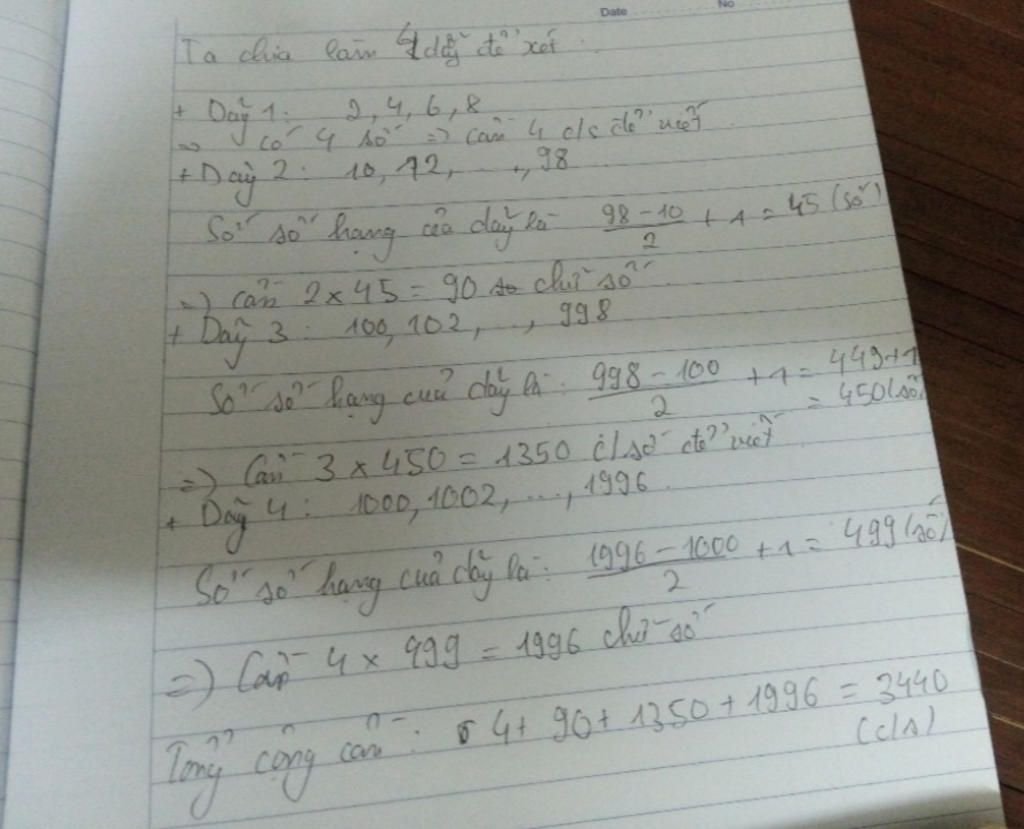 Date No
Ta chia làm 4 dãy để xét
+ Dãy 1: 2, 4, 6, 8
=> có 4 số => cần 4 c/s để viết
+ Dãy 2: 10, 12, ..., 98
Số số hạng của dãy là 98 - 10 / 2 + 1 = 45 (số)
=> Cần 2 x 45 = 90 chữ số
+ Dãy 3: 100, 102, ..., 998
Số số hạng của dãy là: 998 - 100 / 2 + 1 = 449 + 1
= 450 (số)
=> Cần 3 x 450 = 1350 c/số để viết
+ Dãy 4: 1000, 1002, ..., 1996
Số số hạng của dãy là: 1996 - 1000 / 2 + 1 = 499 (số)
=> Cần 4 x 499 = 1996 chữ số
Tổng cộng cần: 4 + 90 + 1350 + 1996 = 3440
(c/s)